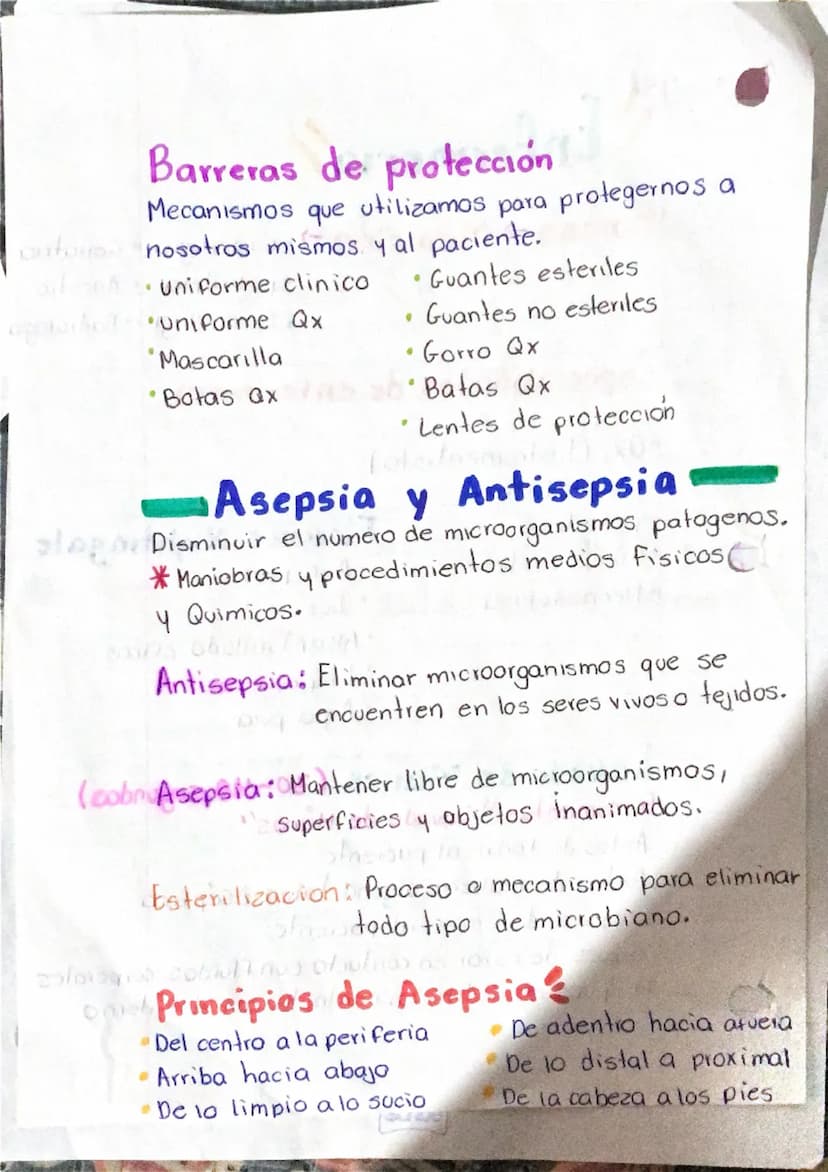 Barreras de protección
Mecanismos que utilizamos para protegernos a
nosotros mismos y al paciente.
• Uniforme clinico
• uniforme Qx
• Mascarilla
• Botas Qx
• Guantes esteriles
• Guantes no esteriles
• Gorro Qx
• Batas Qx
• Lentes de protección
Asepsia y Antisepsia
Disminuir el número de microorganismos patogenos.
* Maniobras y procedimientos medios físicos
y Quimicos.
Antisepsia: Eliminar microorganismos que se
encuentren en los seres vivos o tejidos.
Asepsia: Mantener libre de microorganismos,
superficies y objetos inanimados.
Esterilizacion: Proceso o mecanismo para eliminar
todo tipo de microbiano.
Principios de Asepsia
• Del centro a la periferia
• Arriba hacia abajo
• De lo limpio a lo sucio
• De adentro hacia afuera
• De lo distal a proximal
• De la cabeza a los pies